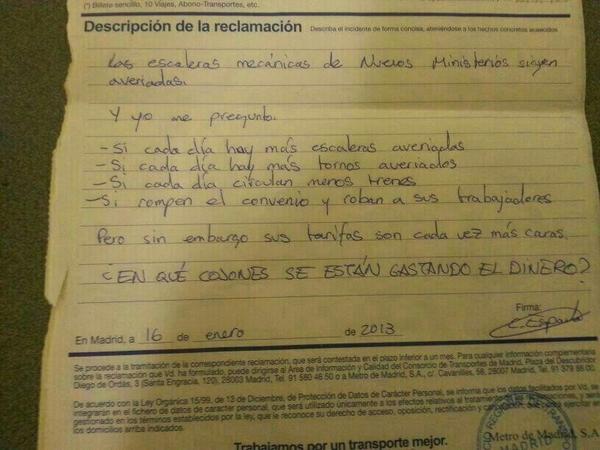 (*) Billete sencillo, 10 Viajes, Abono-Transportes, etc.
Descripción de la reclamación Describa el incidente de forma concisa, ateniéndose a los hechos concretos acaecidos
Las escaleras mecánicas de Nuevos Ministerios siguen
averiadas.
Y yo me pregunto:
-Si cada día hay más escaleras averiadas
-Si cada día hay más tornos averiados
-Si cada día circulan menos trenes
-Si rompen el convenio y roban a sus trabajadores
Pero sin embargo sus tarifas son cada vez más caras.
¿EN QUÉ COJONES SE ESTÁN GASTANDO EL DINERO?
Firma:
C. España
En Madrid, a 16 de enero de 2013
Se procede a la tramitación de la correspondiente reclamación, que será contestada en el plazo inferior a un mes. Para cualquier información complementaria
sobre la reclamación que Vd. ha formulado, puede dirigirse al Área de Información y Calidad del Consorcio de Transportes de Madrid, Plaza del Descubridor
Diego de Ordás, 3 (Santa Engracia, 120), 28003 Madrid, Tel. 91 580 46 50 o a Metro de Madrid, S.A., c/ Cavanilles, 58, 28007 Madrid, Tel. 91 379 88 00.
De acuerdo con la Ley Orgánica 15/99, de 13 de Diciembre, de Protección de Datos de Carácter Personal, se informa que los datos facilitados por Vd. se
integrarán en el fichero de datos de carácter personal, que será utilizado únicamente a los efectos relativos al tratamiento de
gestionado en los términos establecidos por la ley, que le reconoce su derecho de acceso, oposición, rectificación y
los domicilios arriba indicados.
Trabajamos por un transporte mejor.
Metro de Madrid, S.A.
MADRID